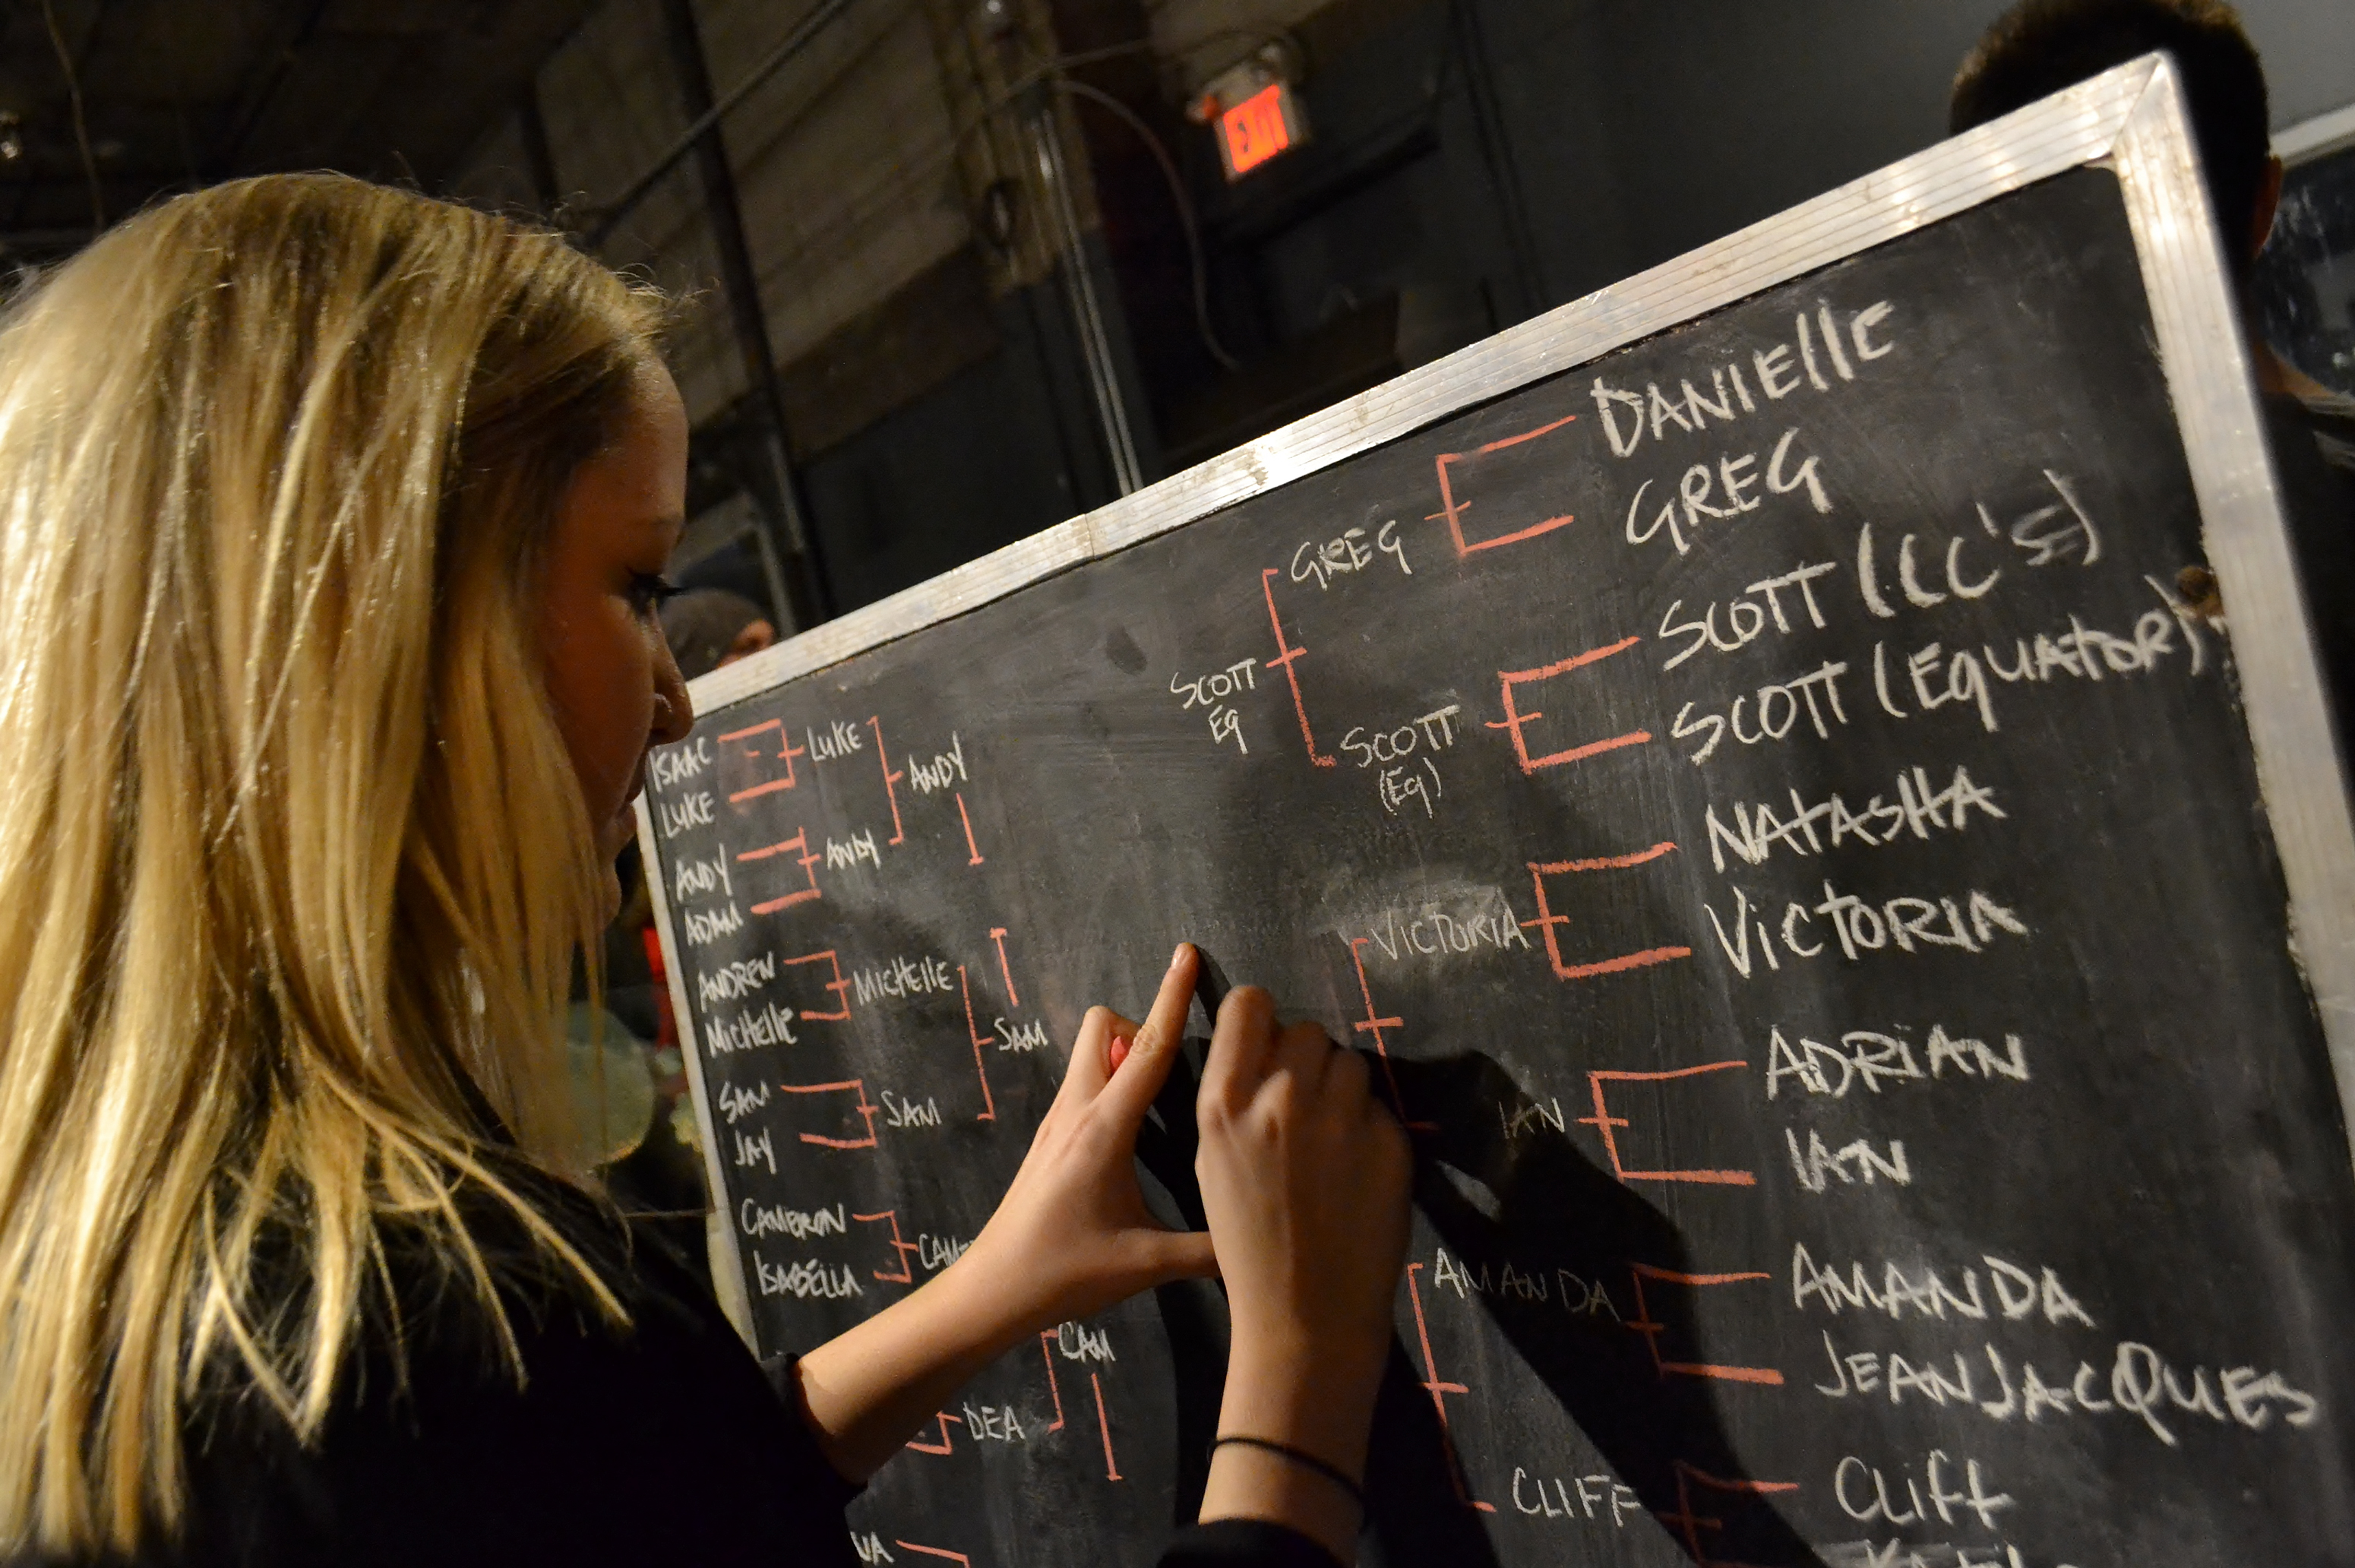 EXIT
DANIELLE
GREG
GREG
SCOTT (CC'S)
SCOTT
Eq
SCOTT
(Eq)
SCOTT (EQUATOR)
NATASHA
VICTORIA
VICTORIA
ADRIAN
IAN
IAN
AMANDA
AMANDA
JEANJACQUES
CLIFF
CLIFF
ISAAC
LUKE
LUKE
ANDY
ANDY
ANDY
ADAM
ANDREW
MICHELLE
MICHELLE
SAM
SAM
SAM
JAY
CAMERON
ISABELLA
CAM
DEA